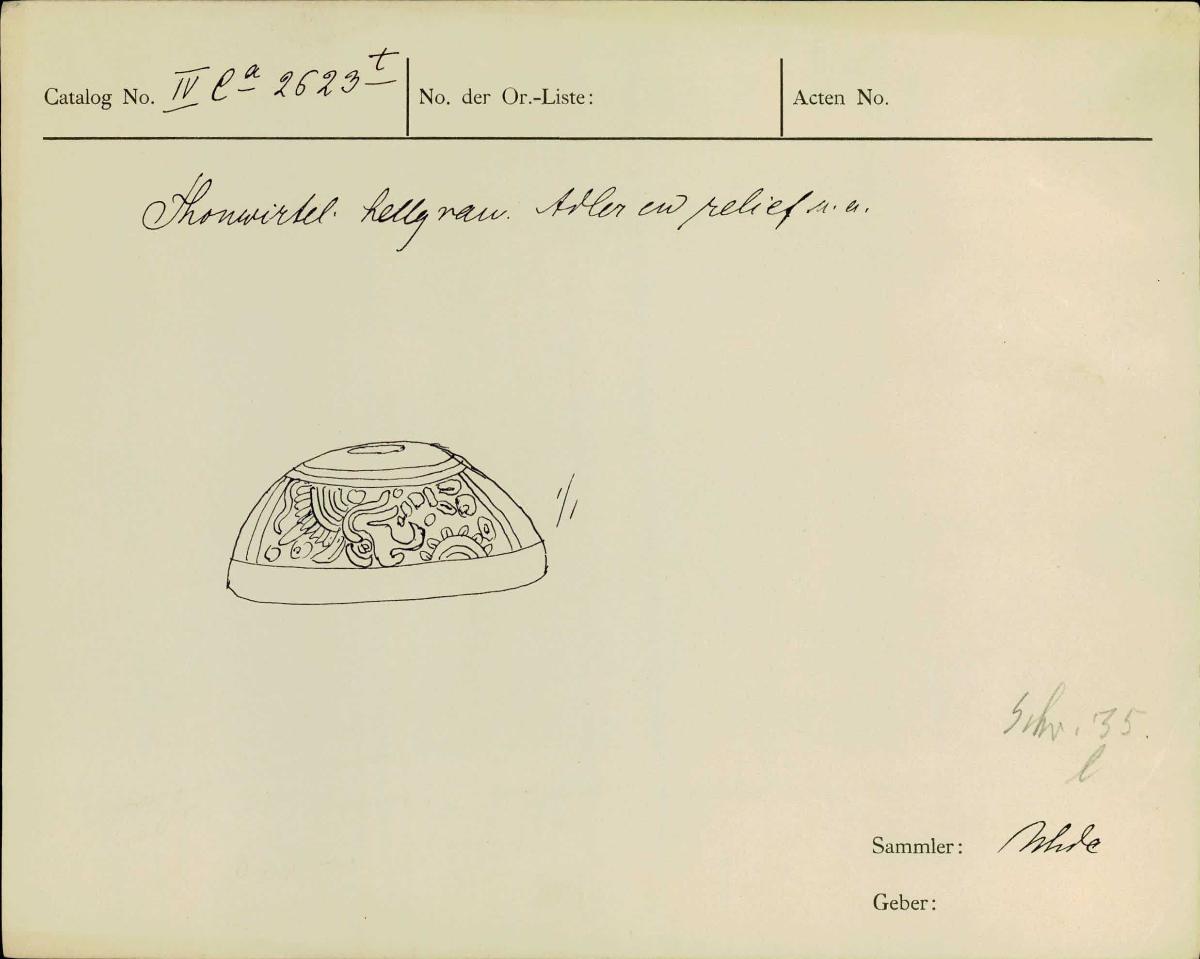 Catalog No. IV Ca 2623 t No. der Or.-Liste: Acten No.
Thonwirtel. hellgrau. Adler en relief u. a.
1/1
Schr. 35.
l
Sammler: Uhde
Geber: